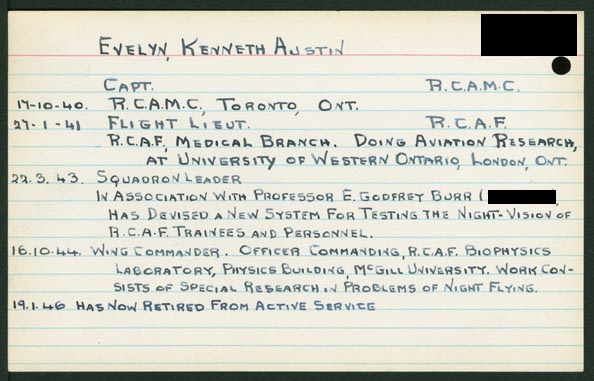 EVELYN, KENNETH AUSTIN
CAPT. R.C.A.M.C.
17-10-40. R.C.A.M.C., TORONTO, ONT.
27-1-41 FLIGHT LIEUT. R.C.A.F.
R.C.A.F., MEDICAL BRANCH. DOING AVIATION RESEARCH,
AT UNIVERSITY OF WESTERN ONTARIO, LONDON, ONT.
22.3.43. SQUADRON LEADER
IN ASSOCIATION WITH PROFESSOR E. GODFREY BURR (
HAS DEVISED A NEW SYSTEM FOR TESTING THE NIGHT-VISION OF
R.C.A.F. TRAINEES AND PERSONNEL.
16.10.44. WING COMMANDER. OFFICER COMMANDING, R.C.A.F. BIOPHYSICS
LABORATORY, PHYSICS BUILDING, MCGILL UNIVERSITY. WORK CON-
SISTS OF SPECIAL RESEARCH IN PROBLEMS OF NIGHT FLYING.
19.1.46 HAS NOW RETIRED FROM ACTIVE SERVICE